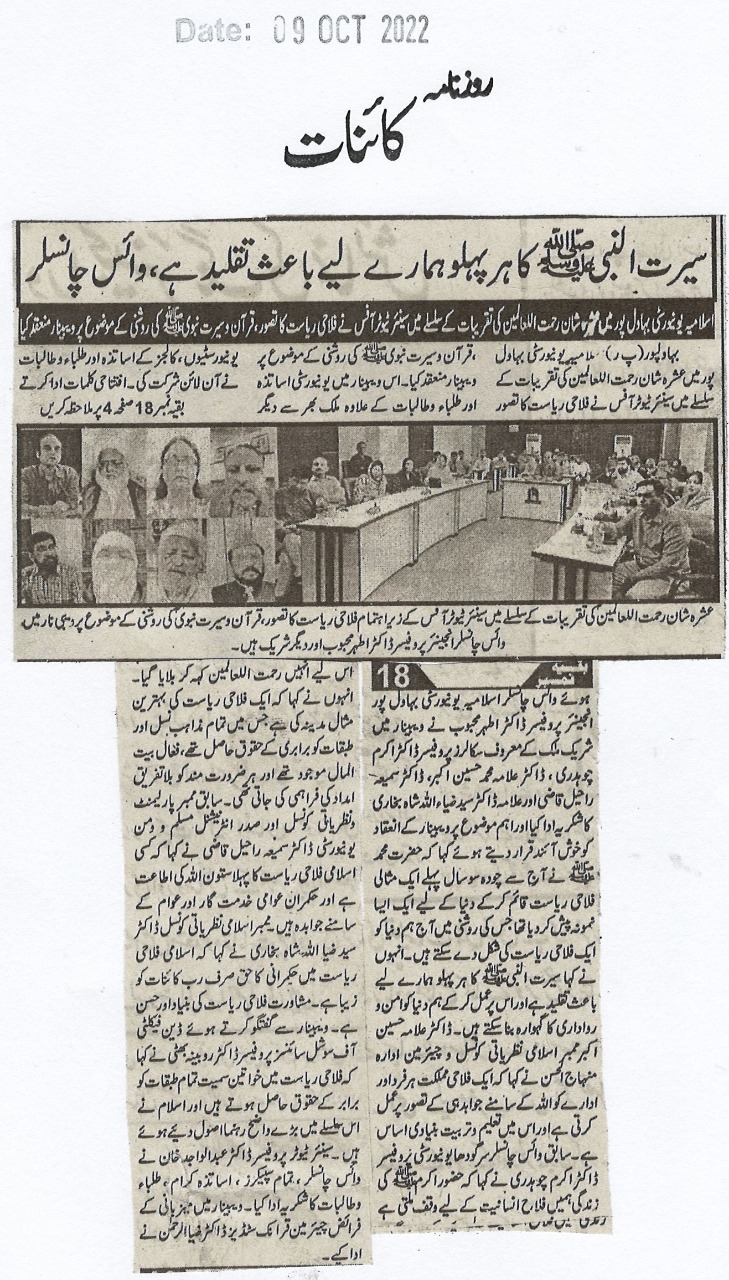 Date: 09 OCT 2022
روزنامہ
کائنات
سیرت النبی ﷺ کا ہر پہلو ہمارے لیے باعث تقلید ہے، وائس چانسلر
اسلامیہ یونیورسٹی بہاول پور میں عشرہ شان رحمت اللعالمین کی تقریبات کے سلسلے میں سینئر ٹیوٹر آفس نے فلاحی ریاست کا تصور، قرآن و سیرت نبوی ﷺ کی روشنی کے موضوع پر ویبینار منعقد کیا
بہاولپور (پ ر) اسلامیہ یونیورسٹی بہاول
پور میں عشرہ شان رحمت اللعالمین کی تقریبات کے
سلسلے میں سینئر ٹیوٹر آفس نے فلاحی ریاست کا تصور
، قرآن و سیرت نبوی ﷺ کی روشنی کے موضوع پر
ویبینار منعقد کیا۔ اس ویبینار میں یونیورسٹی اساتذہ
اور طلباء و طالبات کے علاوہ ملک بھر سے دیگر
یونیورسٹیوں، کالجز کے اساتذہ اور طلباء و طالبات
نے آن لائن شرکت کی۔ افتتاحی کلمات ادا کرتے
بقیہ نمبر 18 صفحہ 4 پر ملاحظہ کریں
عشرہ شان رحمت اللعالمین کی تقریبات کے سلسلے میں سینئر ٹیوٹر آفس کے زیر اہتمام فلاحی ریاست کا تصور، قرآن و سیرت نبوی کی روشنی کے موضوع پر ویبی نار میں
وائس چانسلر انجینئر پروفیسر ڈاکٹر اطہر محبوب اور دیگر شریک ہیں۔
بقیہ نمبر 18
ہوئے وائس چانسلر اسلامیہ یونیورسٹی بہاول پور
انجینئر پروفیسر ڈاکٹر اطہر محبوب نے ویبینار میں
شریک ملک کے معروف سکالرز پروفیسر ڈاکٹر اکرم
چوہدری، ڈاکٹر علامہ محمد حسین اکبر، ڈاکٹر سمیعہ
راحیل قاضی اور علامہ ڈاکٹر سید ضیاء اللہ شاہ بخاری
کا شکریہ ادا کیا اور اہم موضوع پر ویبینار کے انعقاد
کو خوش آئند قرار دیتے ہوئے کہا کہ حضرت محمد
ﷺ نے آج سے چودہ سو سال پہلے ایک مثالی
فلاحی ریاست قائم کر کے دنیا کے لیے ایک ایسا
نمونہ پیش کر دیا تھا جس کی روشنی میں آج ہم دنیا کو
ایک فلاحی ریاست کی شکل دے سکتے ہیں۔ انہوں
نے کہا سیرت النبی ﷺ کا ہر پہلو ہمارے لیے
باعث تقلید ہے اور اس پر عمل کر کے ہم دنیا کو امن و
رواداری کا گہوارہ بنا سکتے ہیں۔ ڈاکٹر علامہ حسین
اکبر ممبر اسلامی نظریاتی کونسل و چیئرمین ادارہ
منہاج الحسن نے کہا کہ ایک فلاحی مملکت ہر فرد اور
ادارے کو اللہ کے سامنے جوابدہی کے تصور پر عمل
کرتی ہے اور اس میں تعلیم و تربیت بنیادی اساس
ہے۔ سابق وائس چانسلر سرگودھا یونیورسٹی پروفیسر
ڈاکٹر اکرم چوہدری نے کہا کہ حضور اکرم ﷺ کی
زندگی ہمیں فلاح انسانیت کے لیے وقف ملتی ہے
اس لیے انہیں رحمت اللعالمین کہہ کر بلایا گیا۔
انہوں نے کہا کہ ایک فلاحی ریاست کی بہترین
مثال مدینہ کی ہے جس میں تمام مذاہب نسل اور
طبقات کو برابری کے حقوق حاصل تھے، فعال بیت
المال موجود تھے اور ہر ضرورت مند کو بلا تفریق
امداد کی فراہمی کی جاتی تھی۔ سابق ممبر پارلیمنٹ
و نظریاتی کونسل اور صدر انٹرنیشنل مسلم و ومن
یونیورسٹی ڈاکٹر سمیعہ راحیل قاضی نے کہا کہ کسی
اسلامی فلاحی ریاست کا پہلا ستون اللہ کی اطاعت
ہے اور حکمران عوامی خدمت گار اور عوام کے
سامنے جوابدہ ہیں۔ ممبر اسلامی نظریاتی کونسل ڈاکٹر
سید ضیا اللہ شاہ بخاری نے کہا کہ اسلامی فلاحی
ریاست میں حکمرانی کا حق صرف رب کائنات کو
زیبا ہے۔ مشاورت فلاحی ریاست کی بنیاد اور حسن
ہے۔ ویبینار سے گفتگو کرتے ہوئے ڈین فیکلٹی
آف سوشل سائنسز پروفیسر ڈاکٹر روبینہ بھٹی نے کہا
کہ فلاحی ریاست میں خواتین سمیت تمام طبقات کو
برابر کے حقوق حاصل ہوتے ہیں اور اسلام نے
اس سلسلے میں بڑے واضح رہنما اصول دیئے ہوئے
ہیں۔ سینئر ٹیوٹر پروفیسر ڈاکٹر عبدالواجد خان نے
وائس چانسلر، تمام سپیکرز، اساتذہ کرام، طلباء
و طالبات کا شکریہ ادا کیا۔ ویبینار میں میزبانی کے
فرائض چیئرمین قرآنک سٹڈیز ڈاکٹر ضیا الرحمٰن نے
ادا کیے۔